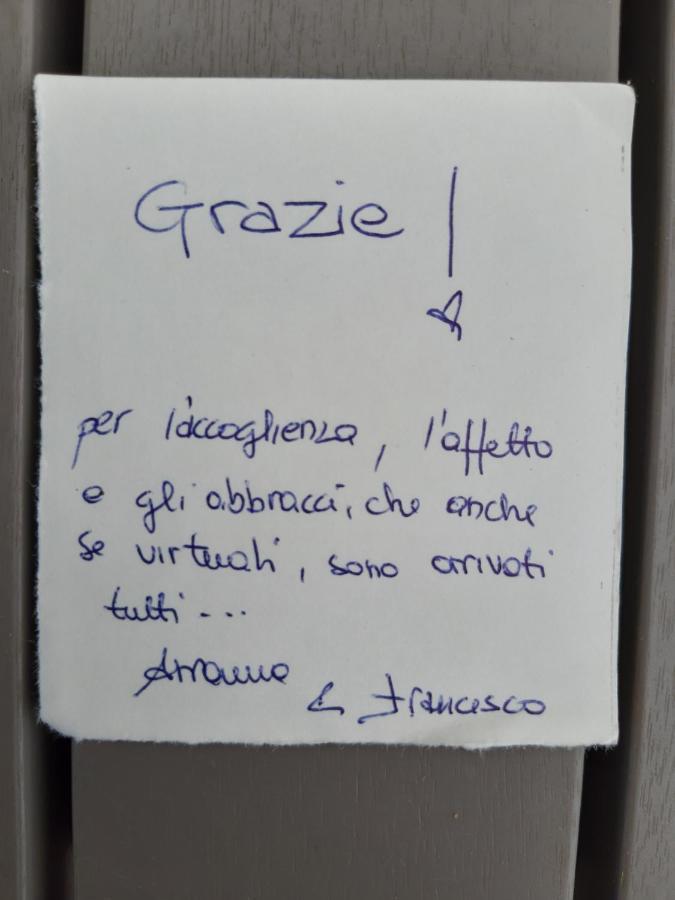 Grazie!
per l'accoglienza, l'affetto
e gli abbracci, che anche
se virtuali, sono arrivati
tutti...
e Francesco